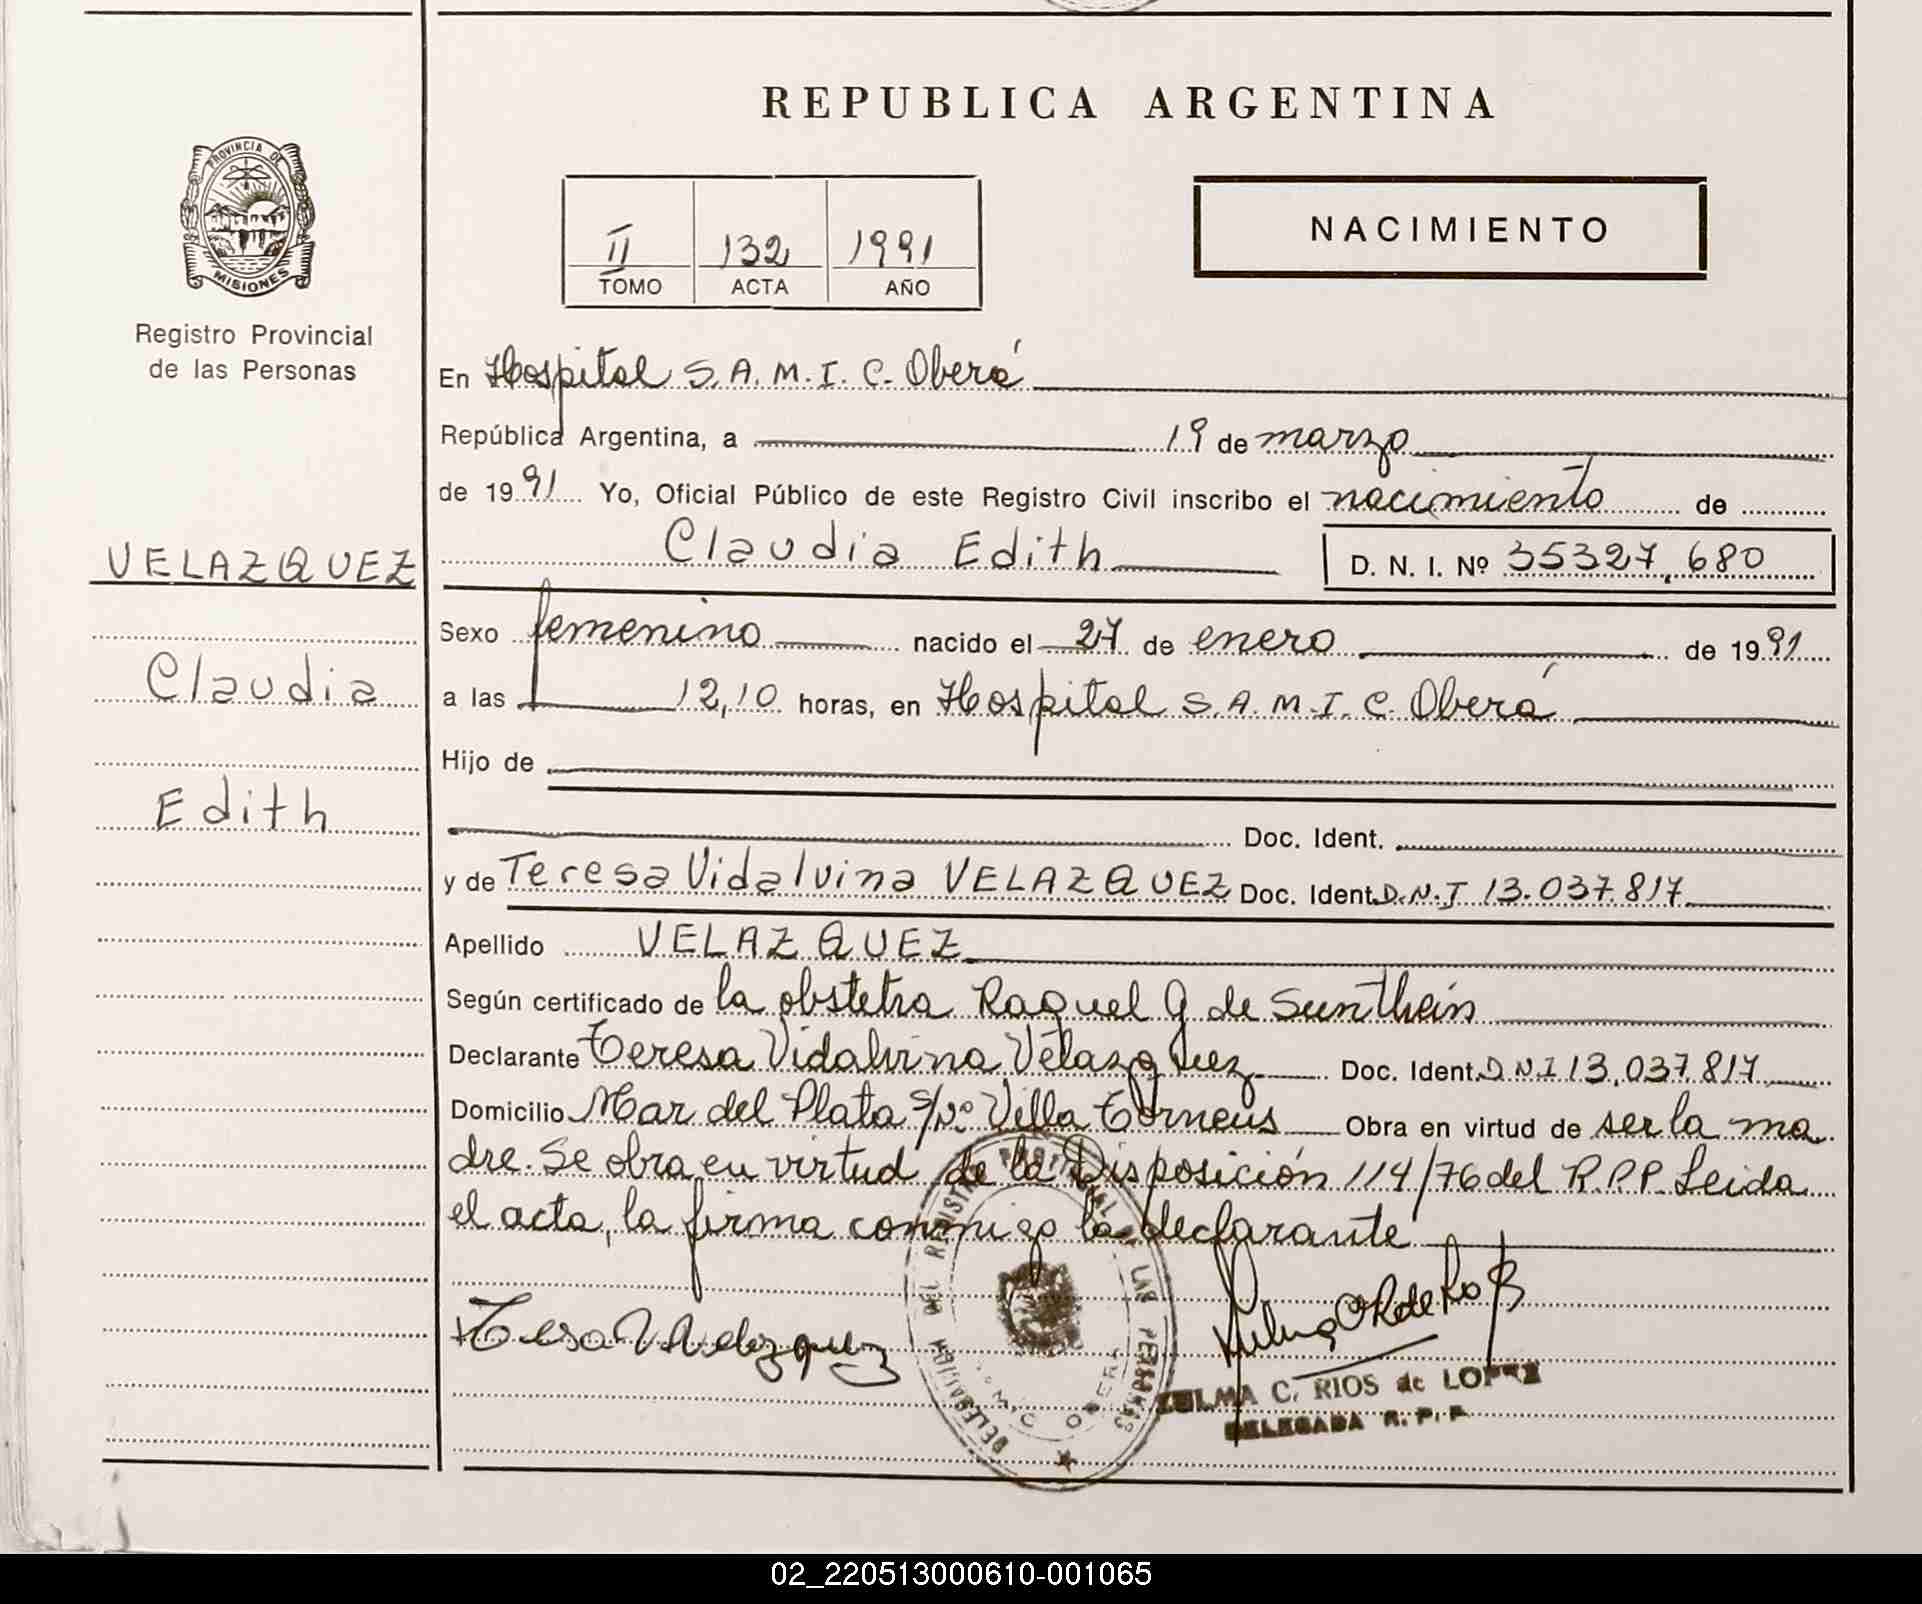 REPUBLICA ARGENTINA
PROVINCIA DE
MISIONES
Registro Provincial
de las Personas
II 132 1991
TOMO ACTA AÑO
NACIMIENTO
En Hospital S.A.M.I.C. Oberá
República Argentina, a 19 de marzo
de 1991 Yo, Oficial Público de este Registro Civil inscribo el nacimiento de
VELAZQUEZ
Claudia Edith D. N. I. Nº 35327.680
Sexo femenino nacido el 27 de enero de 1991
Claudia
a las 12,10 horas, en Hospital S.A.M.I.C. Oberá
Hijo de
Edith
Doc. Ident.
y de Teresa Vidalvina VELAZQUEZ Doc. Ident. D.N.I 13.037.817
Apellido VELAZQUEZ
Según certificado de la obstetra Raquel G de Sunthein
Declarante Teresa Vidalvina Velazquez Doc. Ident. D.N.I 13.037.817
Domicilio Mar del Plata s/Nº Villa Torneus Obra en virtud de ser la ma
dre. Se obra en virtud de la Disposición 114/76 del R.P.P. Leida
el acta, la firma conmigo la declarante
DELEGACION DEL REGISTRO PROVINCIAL DE LAS PERSONAS
OBERA
ZULMA C. RIOS de LOPEZ
DELEGADA R. P. P.
02_220513000610-001065